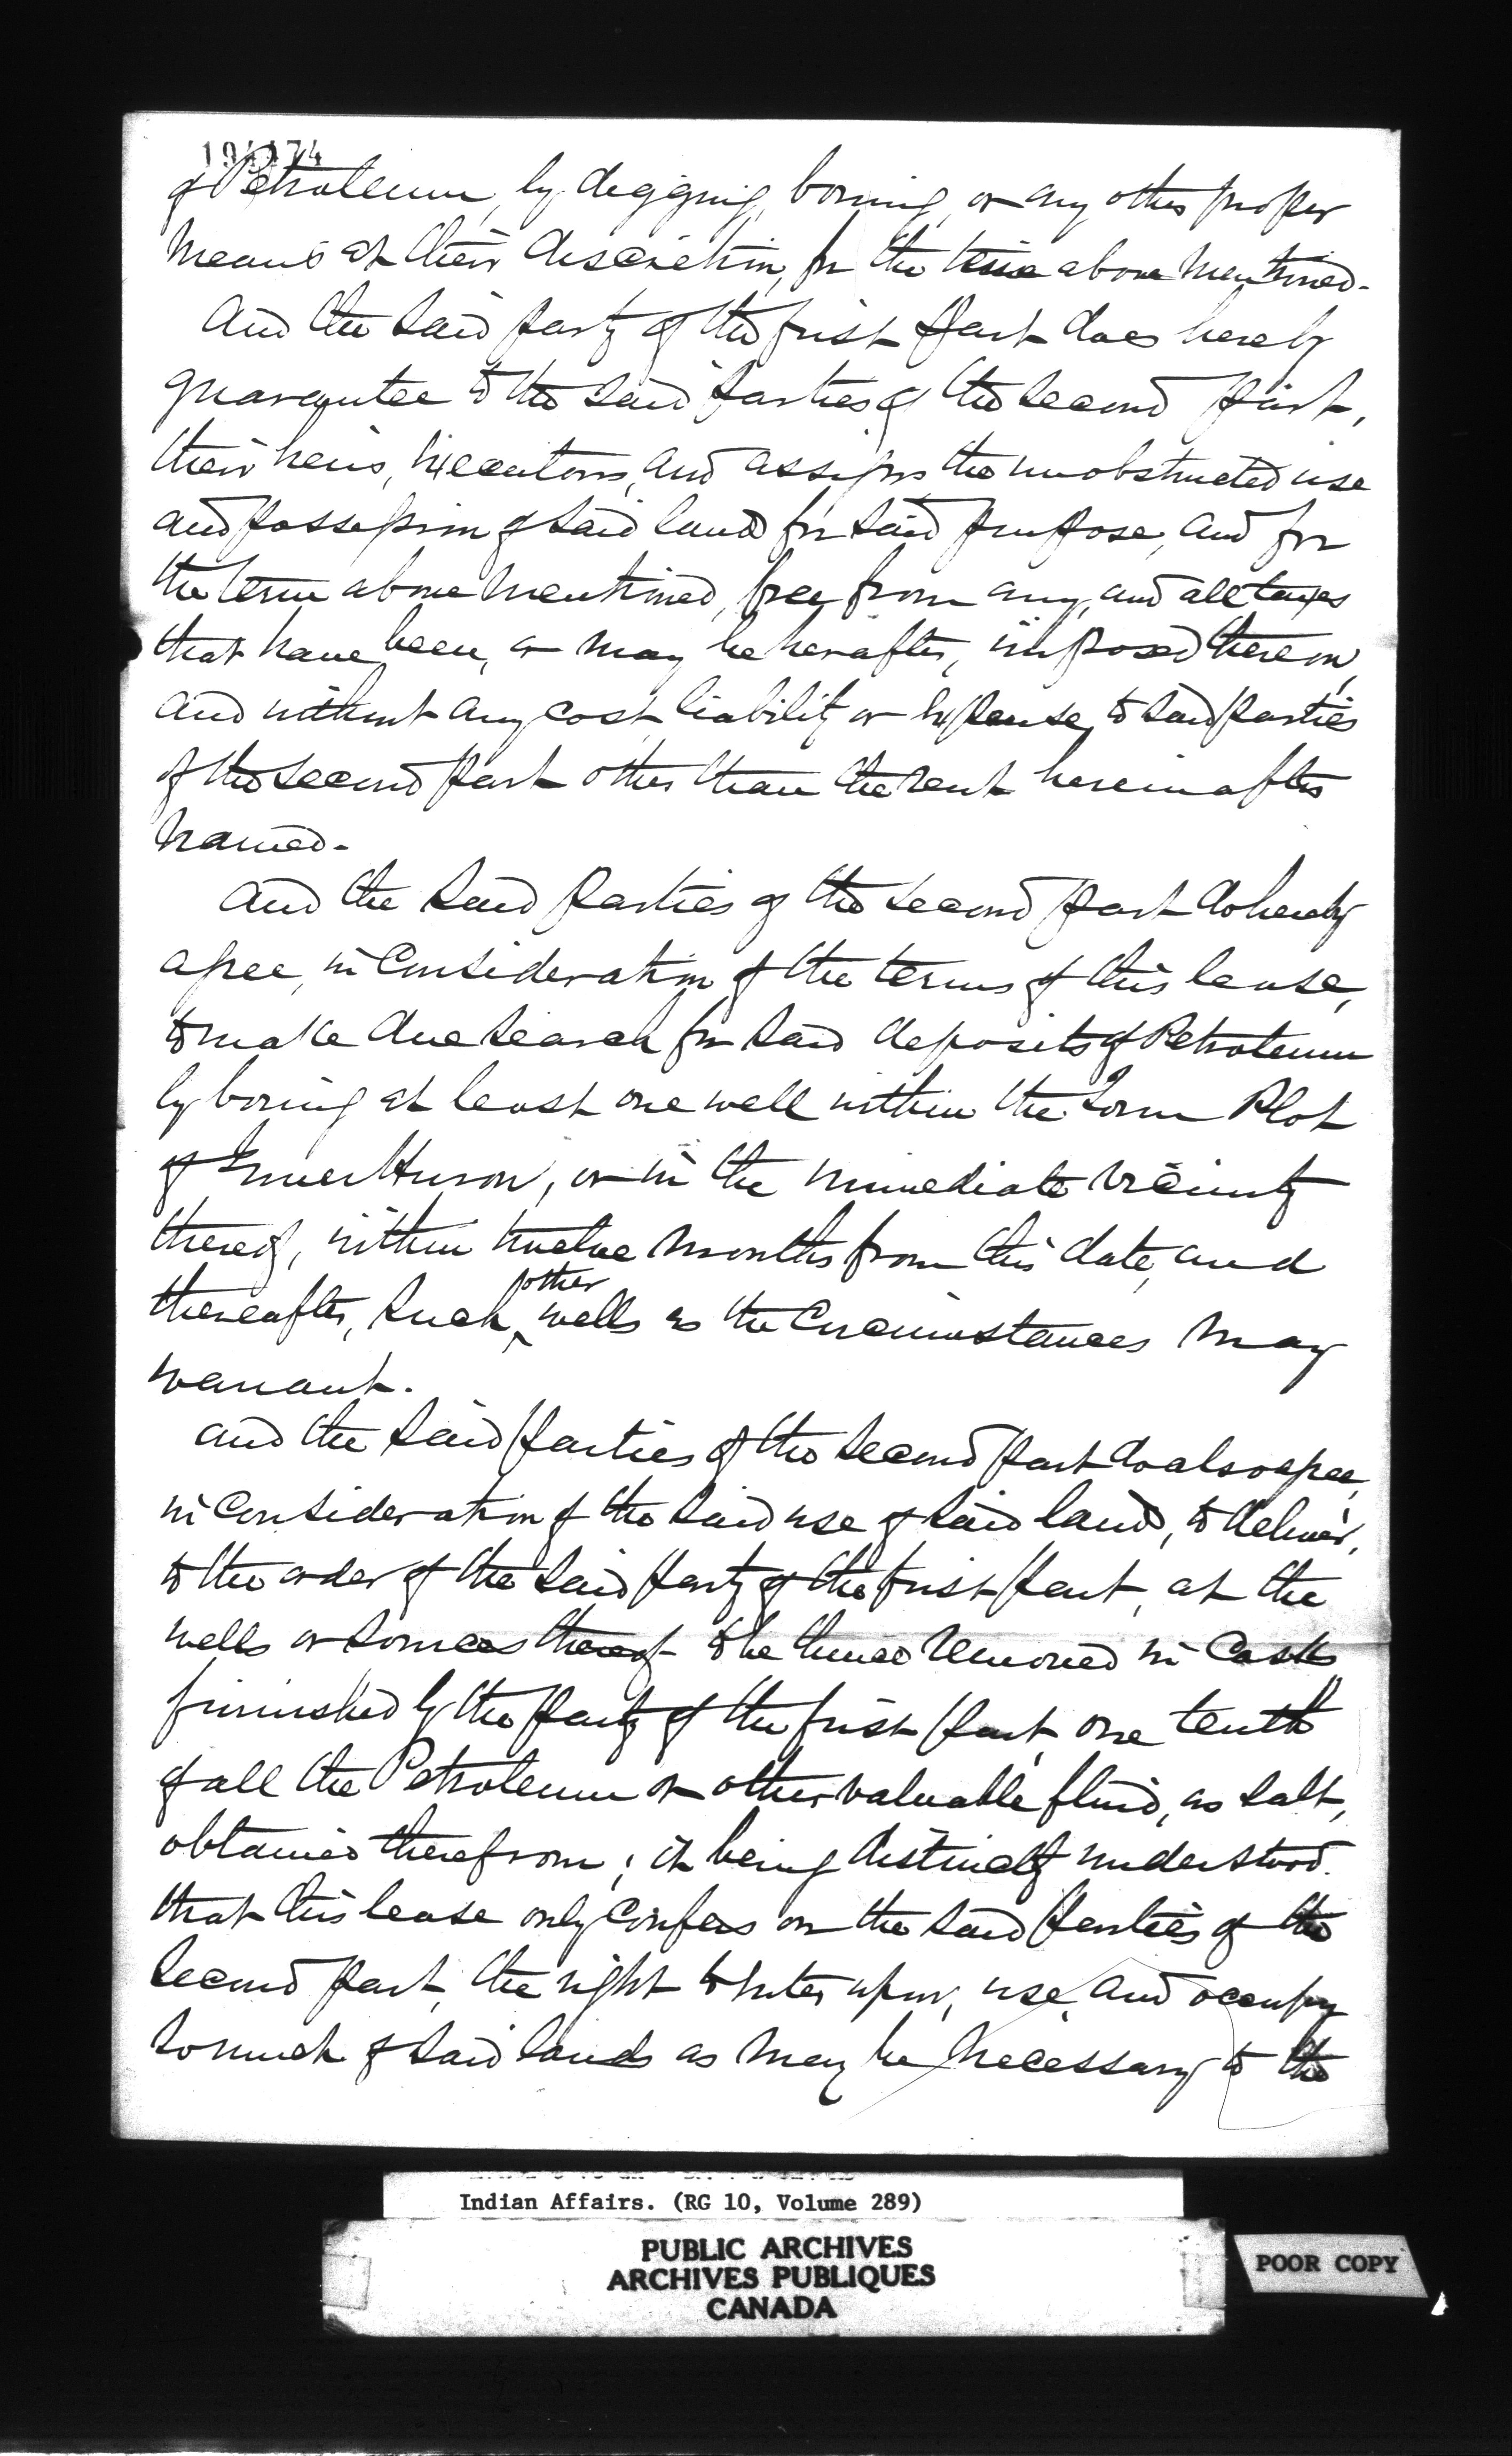 194174
of Petroleum, by digging, boring, or any other proper
means at their discretion, for the time above mentioned.
And the said party of the first part does hereby
guarantee to the said parties of the second part,
their heirs, executors, and assigns, the unobstructed use
and possession of said land for said purpose, and for
the term above mentioned, free from any, and all taxes
that have been, or may be herafter, imposed thereon,
and without any cost, liability or expense, to said parties
of the second part other than the rent hereinafter
named.
And the said parties of the second part do hereby
agree, in consideration of the terms of this lease,
to make due search for said deposits of Petroleum
by boring at least one well within the Town Plot
of Inverhuron, or in the immediate vicinity
thereof, within twelve months from this date, and
thereafter, such other wells as the circumstances may
warrant.
And the said parties of the second part do also agree,
in consideration of the said use of said land, to deliver,
to the order of the said party of the first part, at the
wells or sources thereof to be thence removed in casks
furnished by the party of the first part, one tenth
of all the Petroleum or other valuable fluid, as salt,
obtained therefrom; it being distinctly understood.
that this lease only confers on the said parties of the
second part, the right to enter upon, use, and occupy
so much of said lands as may be necessary to the
Indian Affairs. (RG 10, Volume 289)
PUBLIC ARCHIVES
ARCHIVES PUBLIQUES
CANADA
POOR COPY